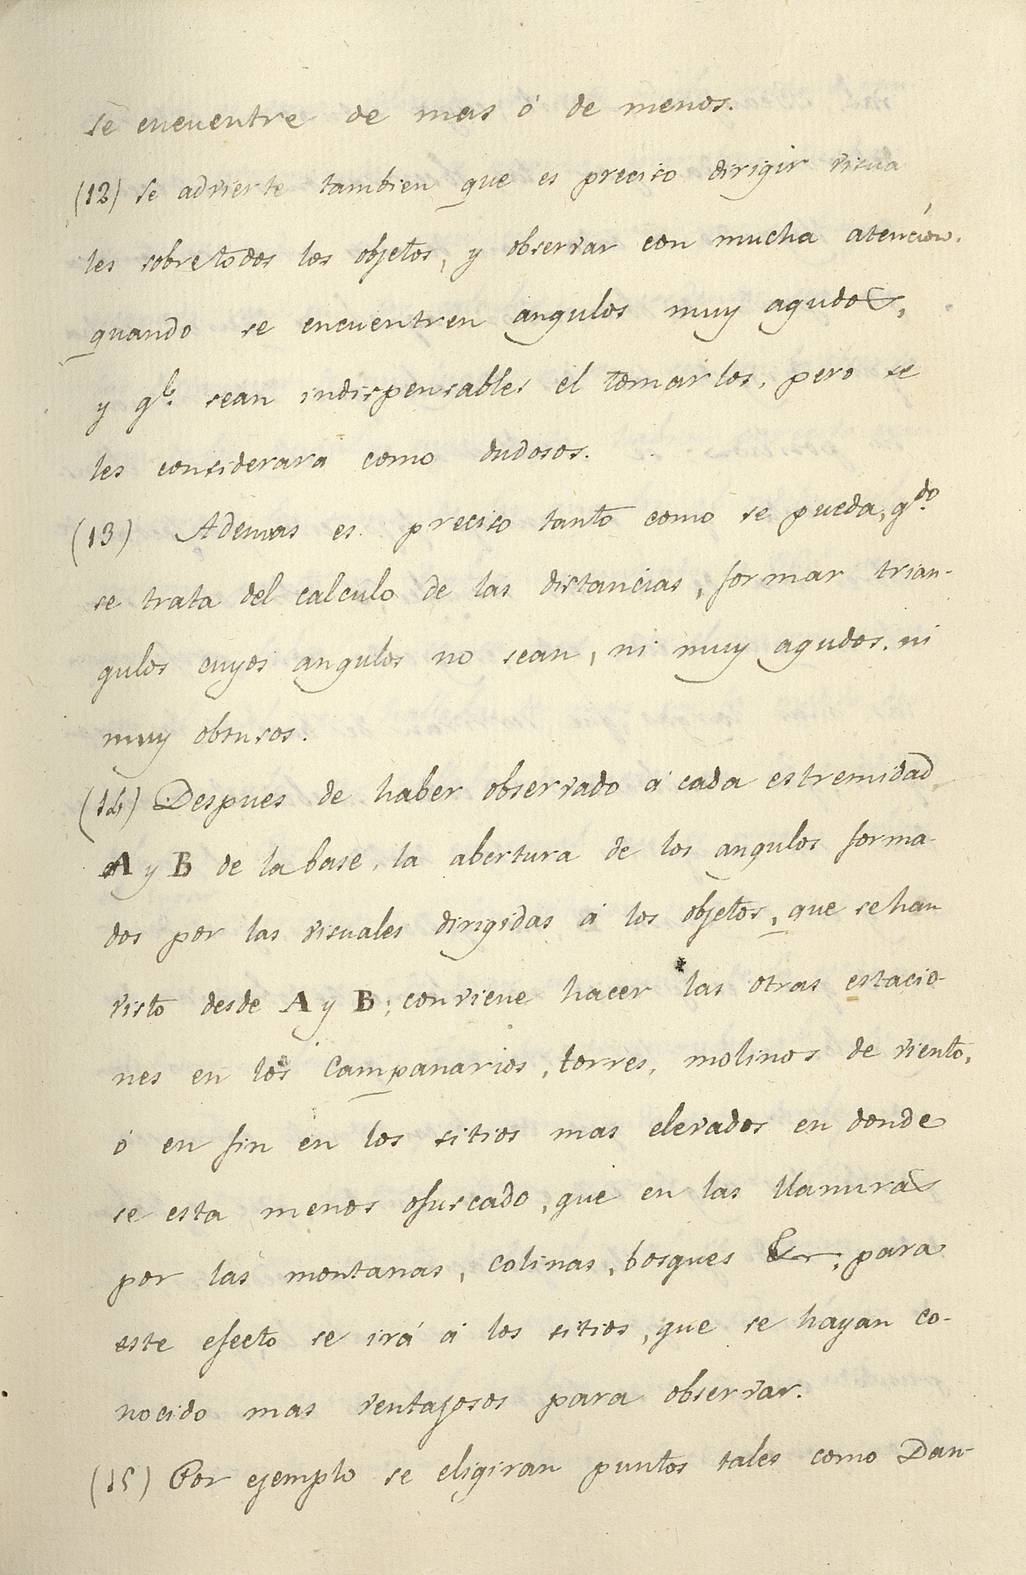 se encuentre de mas ó de menos.
(12) se advierte tambien que es preciso dirigir visua
les sobre todos los objetos, y observar con mucha atención.
quando se encuentren angulos muy agudos,
y qe. sean indispensables el tomarlos, pero se
les considerara como dudosos.
(13) Ademas es preciso tanto como se pueda, qdo.
se trata del calculo de las distancias, formar trian-
gulos cuyos angulos no sean, ni muy agudos. ni
muy obtusos.
(14) Despues de haber observado á cada estremidad
A y B de la base, la abertura de los angulos forma-
dos por las visuales dirigidas á los objetos, que se han
visto desde A y B; conviene hacer las otras estacio-
nes en los Campanarios, torres, molinos de viento,
ó en fin en los sitios mas elevados en donde
se esta menos ofuscado, que en las llanuras
por las montanas, colinas, bosques &, para
este efecto se irá á los sitios, que se hayan co-
nocido mas ventajosos para observar.
(15) Por ejemplo se eligiran puntos tales como Dan-